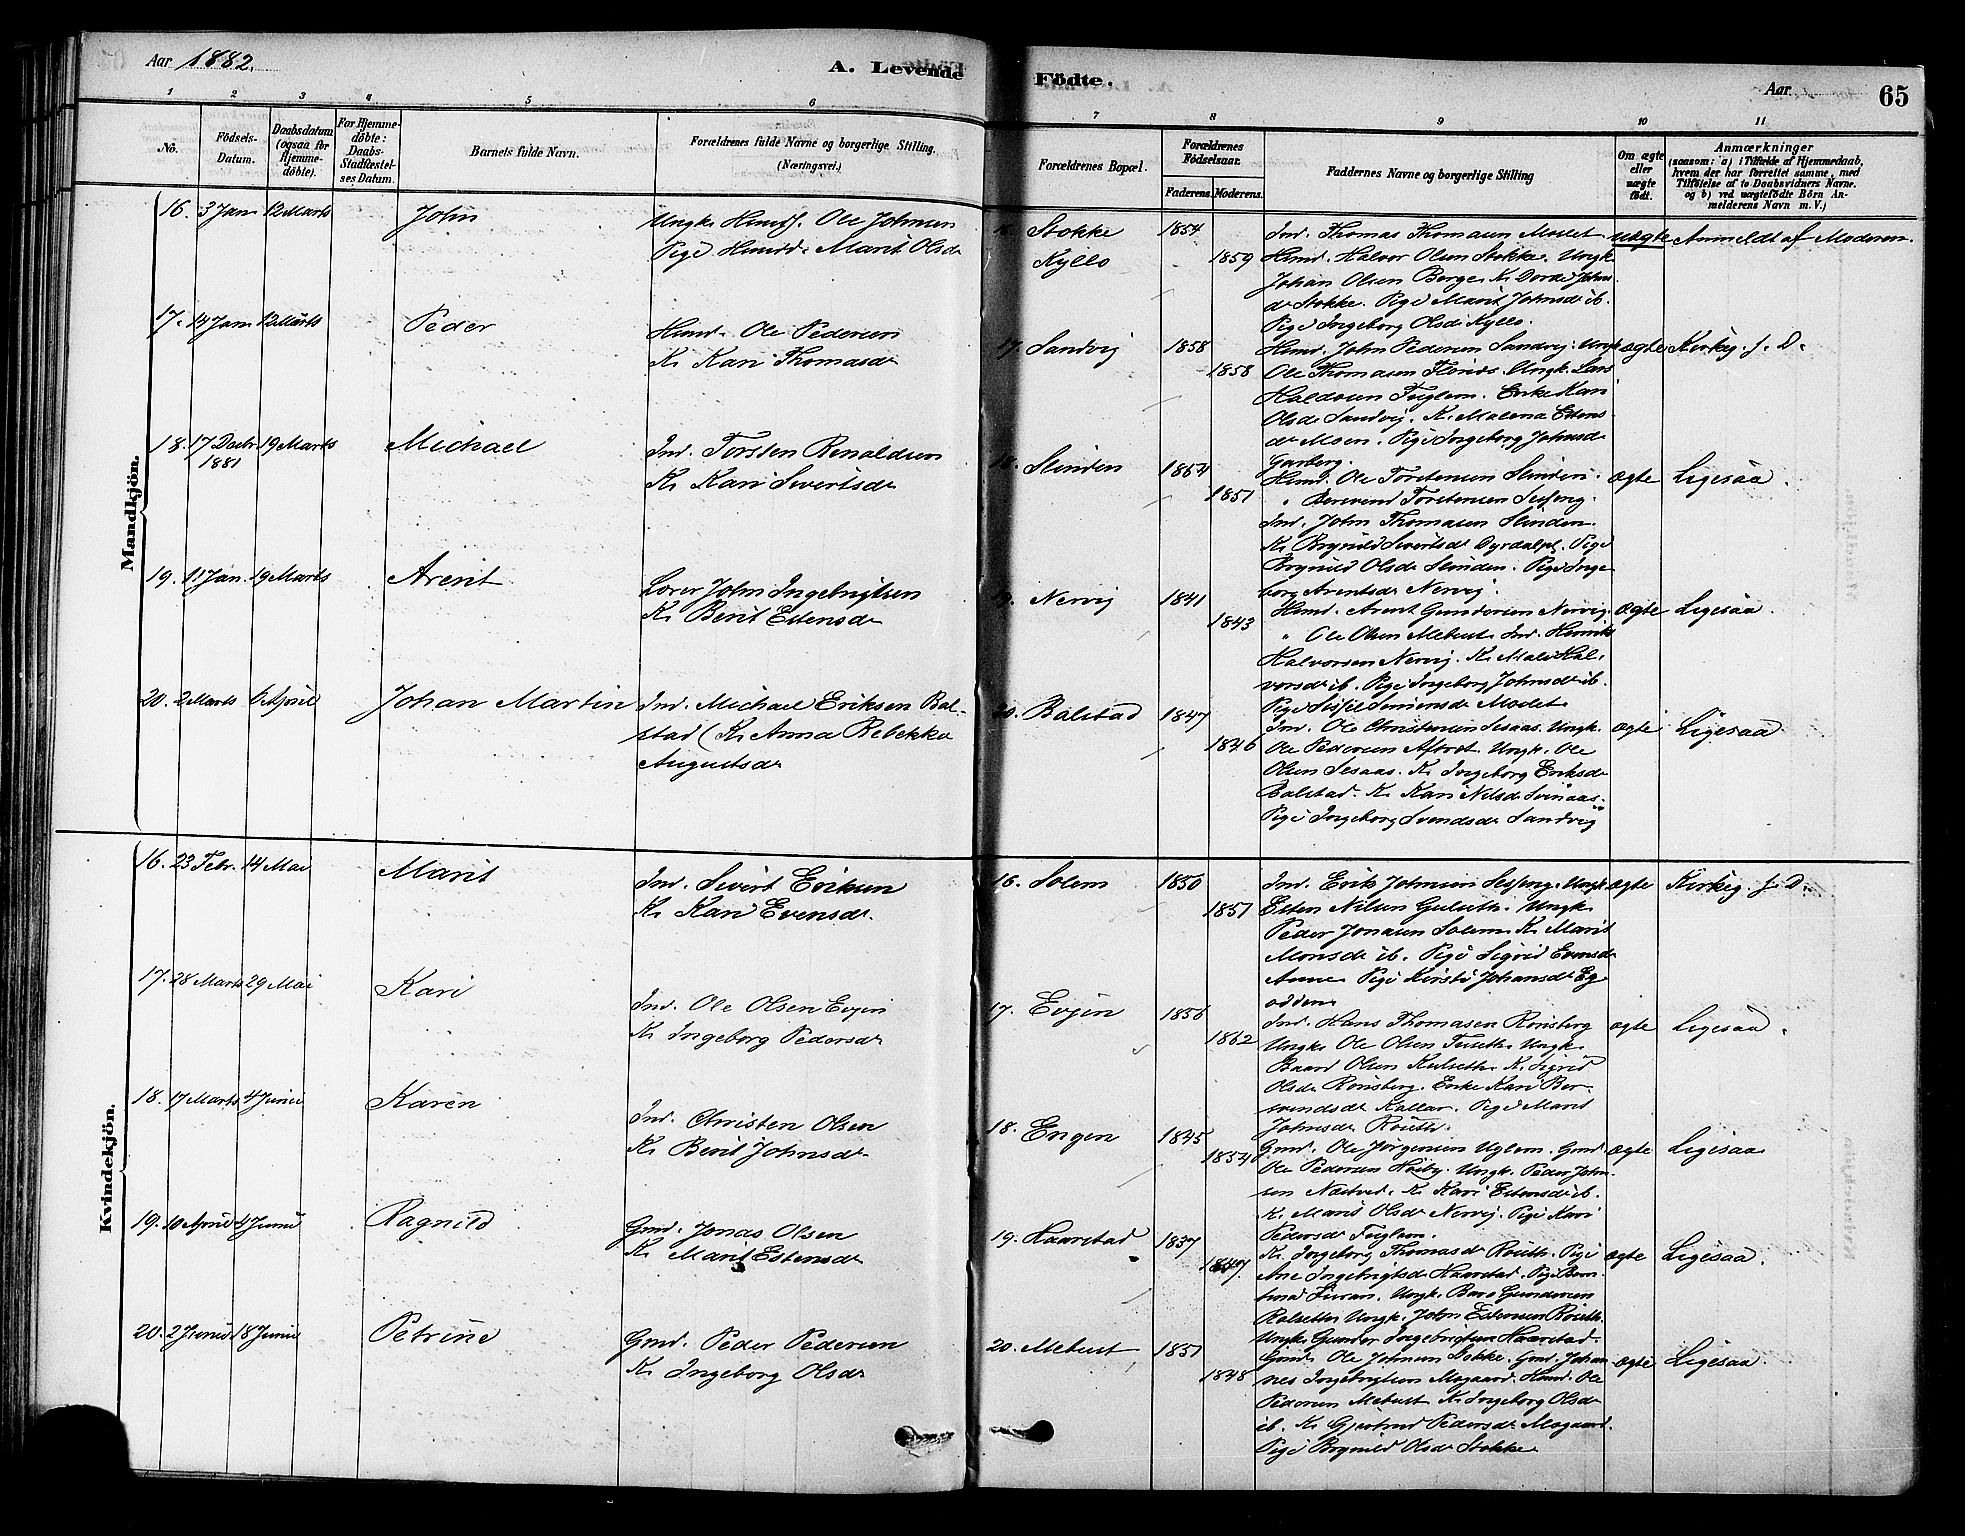 Aar 1882.
A. Levende
Födte.
Aar
65
1 2 3 4 5 6 7 8 9 10 11
No.
Födsels-Datum.
Daabsdatum (ogsaa for Hjemme-döbte).
For Hjemme-döbte: Daabs-Stadfæstel-ses Datum.
Barnets fulde Navn.
Forældrenes fulde Navne og borgerlige Stilling.
(Næringsvei.)
Forældrenes Bopæl.
Forældrenes Födselsaar.
Faderens. Moderens.
Faddernes Navne og borgerlige Stilling
Om ægte eller uægte födt.
Anmærkninger
(saasom: a) i Tilfælde af Hjemmedaab,
hvem der har forrettet samme, med
Tilföielse af to Daabsvidners Navne.
og b) ved uægtefödte Börn An-
melderens Navn m. V.)
Mandkjön.
16. 3 Jan 12 Marts John
Ungk. Huusf. Ole Johnsen
Pige Huusd. Marit Olsdr
16. Stokke 1854
Kyllo 1859
Ind. Thomas Thomasen Moslet
Huusm. Halvor Olsen Stokke. Ungk.
Johan Olsen Berge. K. Dorde Johns-
dr Stokke. Pige Marit Johnsdr ib.
Pige Ingeborg Olsdr Kyllo.
uægte Anmeldt af Moderen.
17. 14 Jan 12 Marts Peder
Huusm. Ole Pedersen
K. Kari Thomasdr
17. Sandvig 1858
1858
Huusm. John Pedersen Sandvig. Ungk
Ole Thomasen Flønes. Ungk. Lars
Haldosen Fuglem. Enke Kari
Olsdr Sandvig. K. Malena Estens-
dr Moen. Pige Ingeborg Johnsdr
Garberg.
ægte Kirkeg. f. D.
18. 17 Decbr 1881 19 Marts Michael
Ind. Torsten Renaldsen
K. Kari Sivertsdr
18. Slinden 1854
1851
Huusm. Ole Torstensen Slinden.
" Berevend Torstensen Sesseng.
Ind. John Thomasen Slinden.
K. Brynild Sivertsdr Dyrdalpl. Pige
Brynild Olsdr Slinden. Pige Inge
borg Arentsdr Nervig.
ægte Ligesaa.
19. 11 Jan. 19 Marts Arent
Lærer John Ingebrigtsen
K. Berit Estensdr
19. Nervig 1841
1843
Huusm. Arent Gundersen Nervig.
" Ole Olsen Mebust. Ind. Henrik
Halvorsen Nervig. K. Mali Hal-
vorsdr ib. Pige Ingeborg Johnsdr ib.
Pige Sissel Simensdr Moslet
ægte Ligesaa.
20. 2 Marts 6 April Johan Martin
Ind. Michael Eriksen Bal-
stad (K. Anna Rebekka
Augustsdr
20. Balstad 1847
1846
Ind. Ole Christensen Sesaas. Ungk.
Ole Pedersen Aftret. Ungk. Ole
Olsen Sesaas. K. Ingeborg Eriksdr
Balstad. K. Kari Nilsdr Svinaas.
Pige Ingeborg Svendsdr Sandvig
ægte Ligesaa
Kvindekjön.
16. 23 Febr. 14 Mai Marit
Ind. Sivert Eriksen
K. Kari Evensdr.
16. Solem 1850
1851
Ind. Erik Johnsen Sesseng. Ungk.
Esten Nilsen Gulseth. Ungk.
Peder Jonasen Solem. K. Marit
Monsdr ib. Pige Sigrid Evensdr
Aune. Pige Kirsti Johansdr Eg
odden.
ægte Kirkeg. f. D.
17. 28 Marts 29 Mai Kari
Ind. Ole Olsen Evjen
K. Ingeborg Pedersdr
17. Evjen 1856
1862
Ind. Hans Thomasen Rønsberg
Ungk. Ole Olsen Tuseth. Ungk.
Baard Olsen Kulseth. K. Sigrid
Olsdr Rønsberg. Enke Kari Ber-
svendsdr Kallar. Pige Marit
Johnsdr Røseth.
ægte Ligesaa.
18. 17 Marts 4 Juni Karen
Ind. Christen Olsen
K. Berit Johnsdr
18. Engen 1845
1854
Gmd. Ole Jørgensen Uglem. Gmd.
Ole Pedersen Næsby. Ungk. Peder John-
sen Næstved. K. Kari Estensdr ib.
K. Marit Olsdr Nervig. Pige Kari
Pedersdr Fuglem.
ægte Ligesaa
19. 10 April 4 Juni Ragnild
Gmd. Jonas Olsen
K. Marit Estensdr
19. Haarstad 1837
1847.
K. Ingeborg Thomasdr Røseth. Pige
Ane Ingebrigtsdr Haarstad. Pige Beret
Furan. Ungk. Baro Gundersen
Rolseth. Ungk. John Estensen Røseth.
Ungk. Gunder Ingebrigtsen Haarstad.
ægte Ligesaa.
20. 2 Juni 18 Juni Petrine
Gmd. Peder Pedersen
K. Ingeborg Olsdr
20. Mebust 1851
1848
Gmd. Ole Johnsen Stokke. Gmd. Johan-
nes Ingebrigtsen Mogaard. Huusm. Ole
Pedersen Mebust. K. Ingeborg Olsdr
ib. K. Gjertrud Pedersdr Mogaard.
Pige Brynild Olsdr Stokke.
ægte Ligesaa.